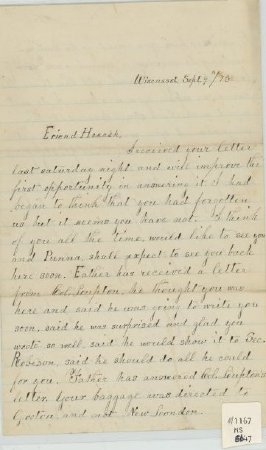 Wiscasset Sept 9/83
Friend Hannah,
I received your letter
last saturday night and will improve the
first opportunity in answering it. I had
began to think that you had forgotten
us but it seems you have not. I think
of you all the time, would like to see you
and Dunna, shall expect to see you back
here soon. Father has received a letter
from Col. Lupton, he thought you was
here and said he was going to write you
soon, said he was surprised and glad you
wrote so well, said he would show it to Sec.
Robison, said he should do all he could
for you. Father has answered Col. Lupton's
letter. Your baggage was directed to
Groton, and not New London.
MS